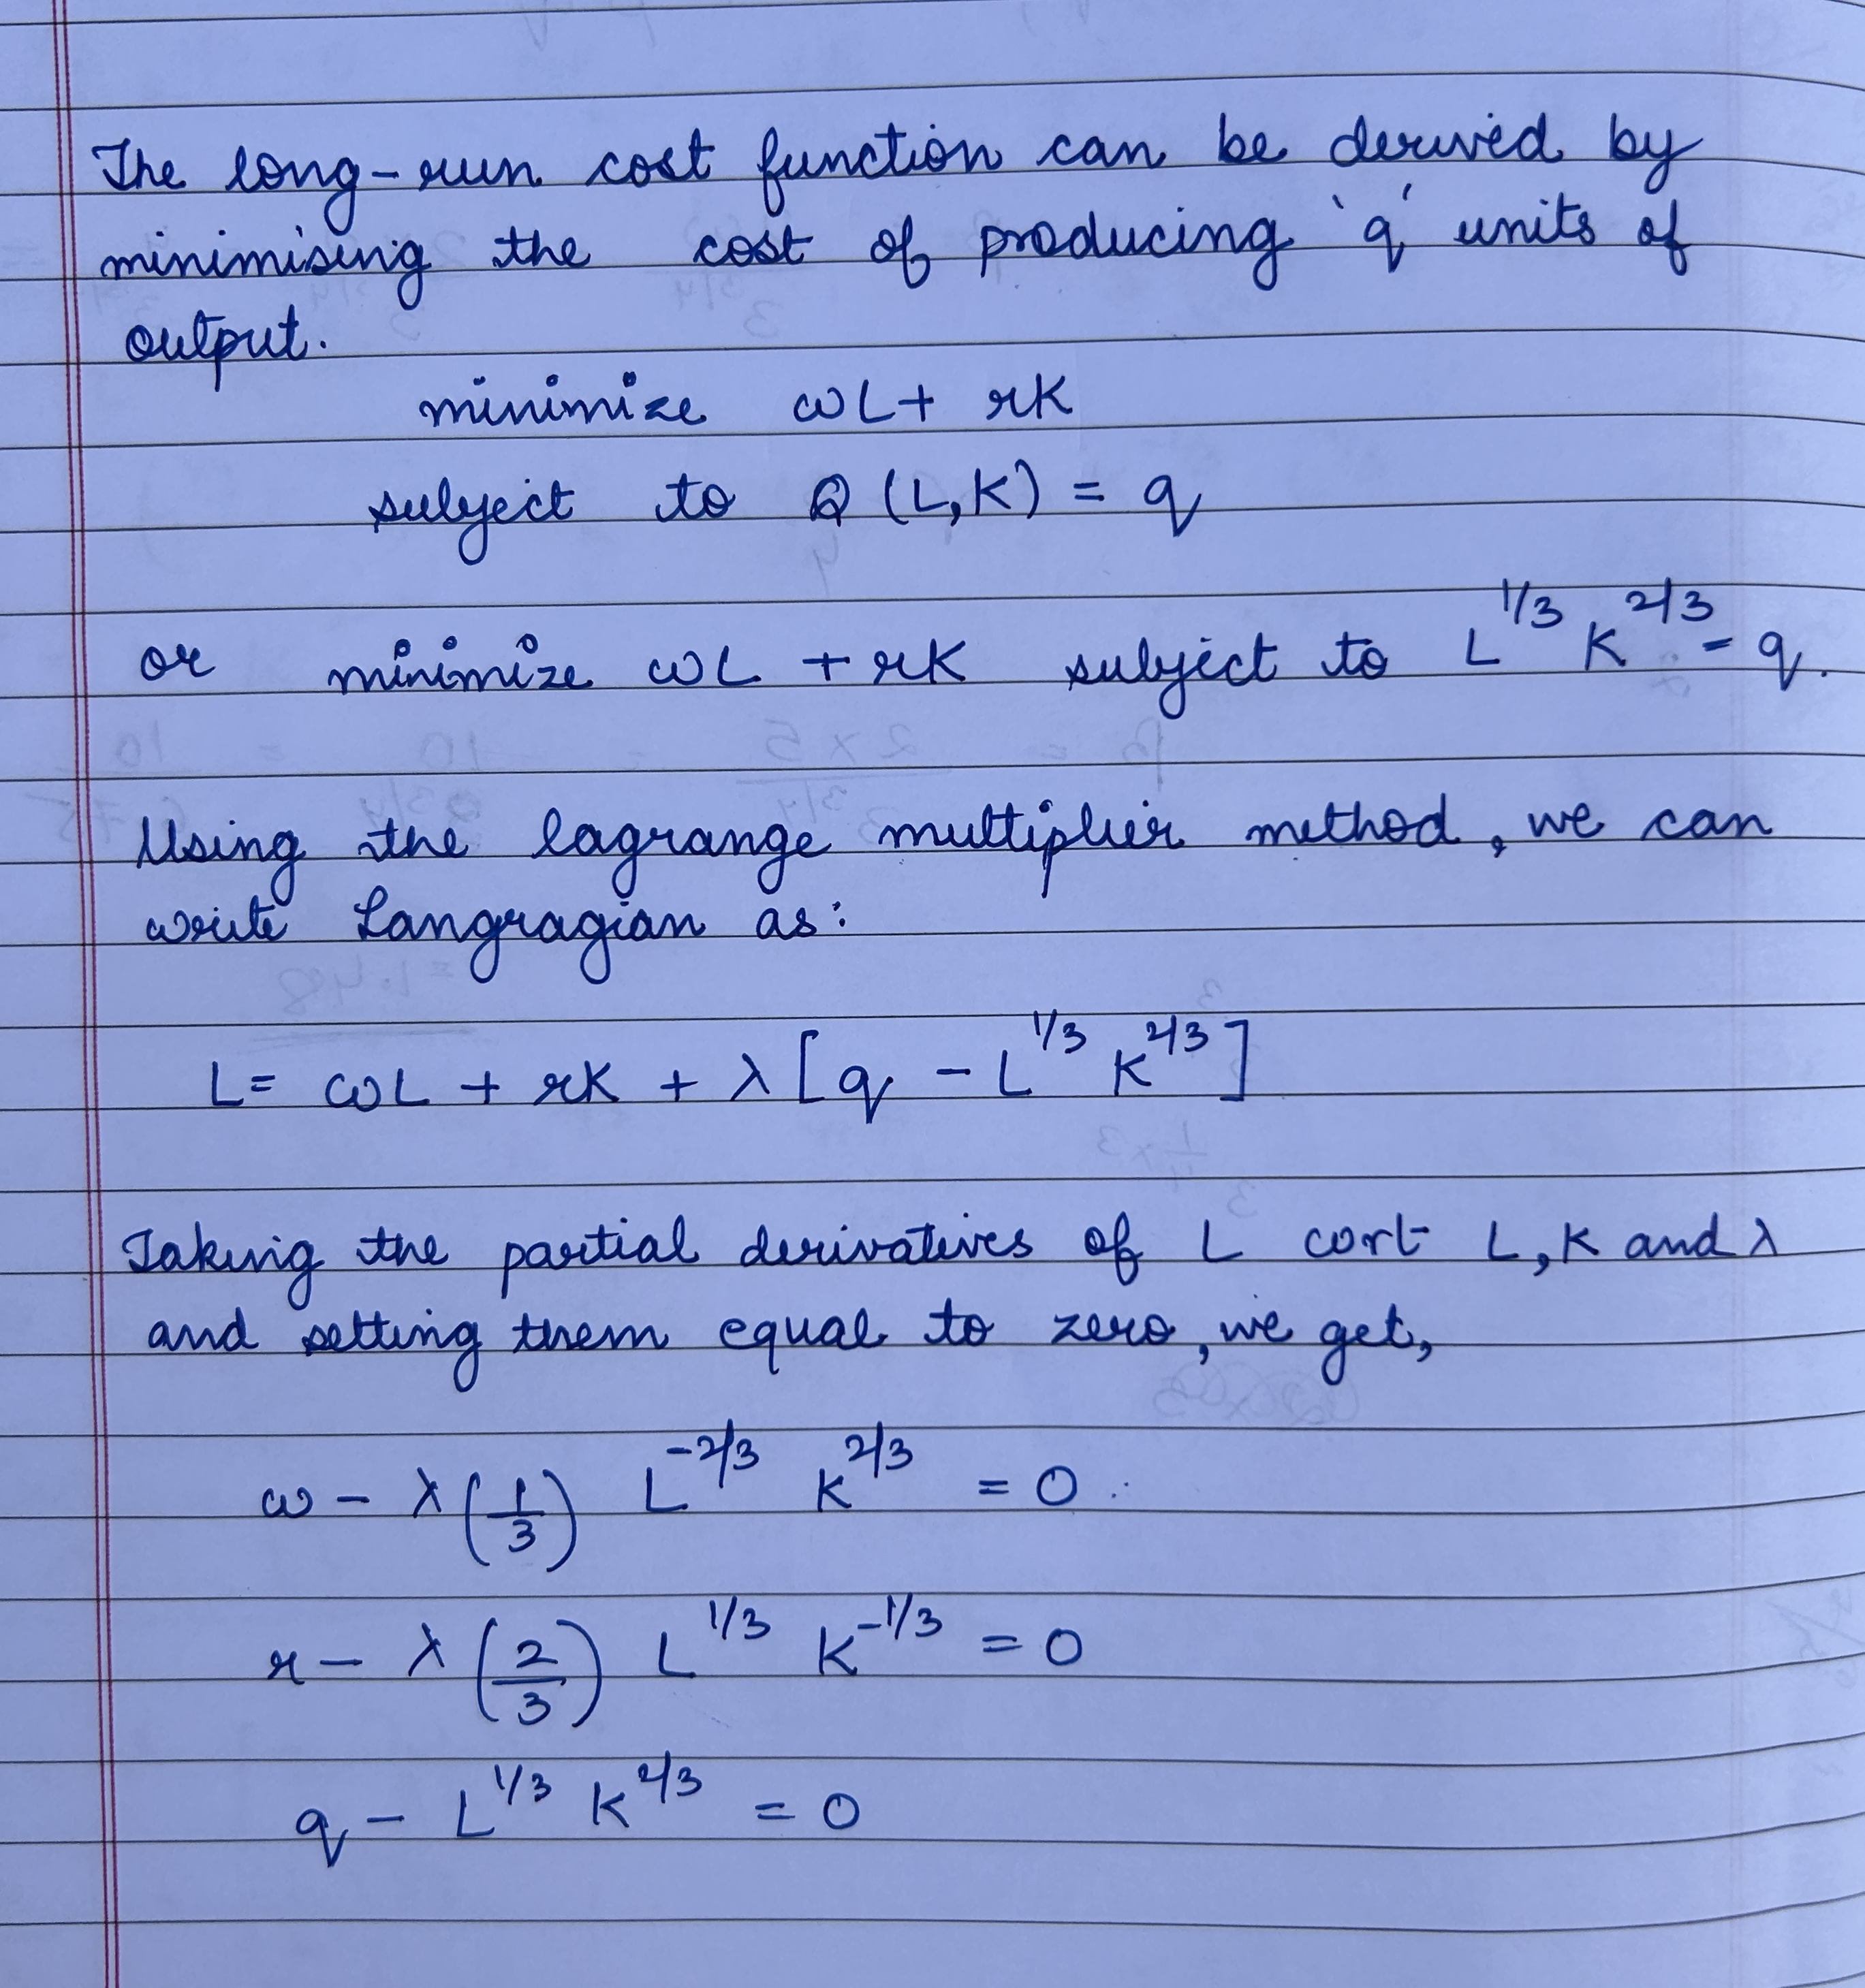 The long-run cost function can be derived by
minimising the cost of producing 'q' units of
output.
minimize ωL + rK
subject to Q (L,K) = q
or minimize ωL + rK subject to L^1/3 K^2/3 = q.
Using the lagrange multiplier method, we can
write Langragian as:
L = ωL + rK + λ [q - L^1/3 K^2/3]
Taking the partial derivatives of L wrt L, K and λ
and setting them equal to zero, we get,
ω - λ (1/3) L^-2/3 K^2/3 = 0
r - λ (2/3) L^1/3 K^-1/3 = 0
q - L^1/3 K^2/3 = 0